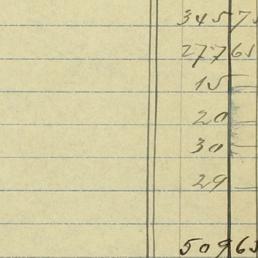 345 75
277 65
15
20
30
29
509 65